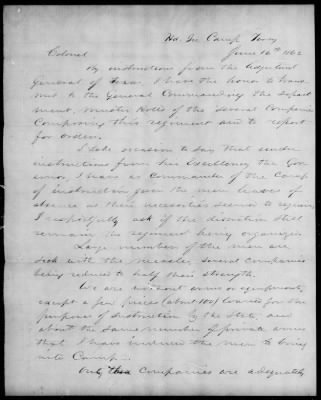 Hd. Qr. Camp Terry
June 16th 1862
Colonel
By instructions from the Adjutant
General of Texas, I have the honor to trans
mit to the General Commanding the Depart
ment, Muster Rolls of the several Companies
Composing this regiment and to report
for orders.
I take occasion to say that under
instructions from his Excellency the Gov
ernor, I have as Commander of the Camp
of instruction given the men leaves of
absence as their necessities seemed to require,
I respectfully ask if the discretion still
remains, the regiment being organized.
Large number of the men are
sick with the measles, several companies
being reduced to half their strength.
We are without arms or equipments,
except a few pieces (about 100) loaned for the
purposes of instruction by the State, and
about the same number of private arms
that I have induced the men to bring
into Camp.
Only two Companies are adequately